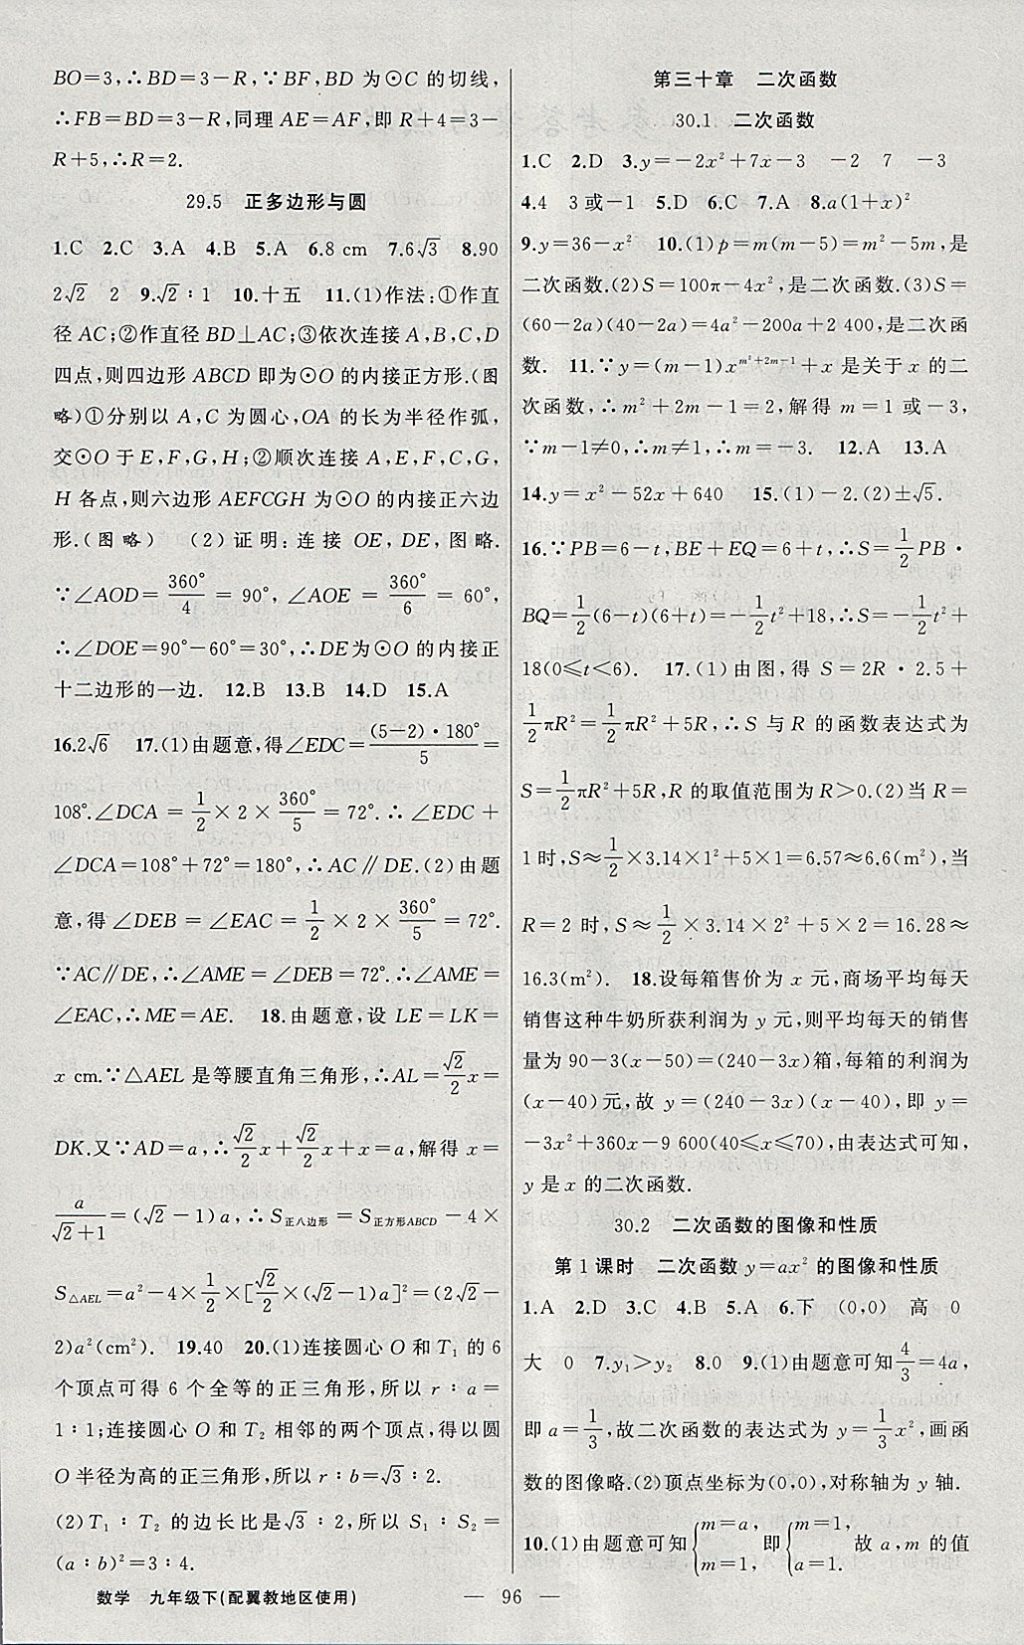 BO=3,∴BD=3-R,∵BF,BD 为⊙C 的切线,
∴FB=BD=3-R,同理 AE=AF,即 R+4=3-
R+5,∴R=2.
29.5 正多边形与圆
1.C 2.C 3.A 4.B 5.A 6.8 cm 7.6√3 8.90
2√2 2 9.√2∶1 10.十五 11.(1)作法:①作直
径 AC;②作直径 BD⊥AC;③依次连接 A,B,C,D
四点,则四边形 ABCD 即为⊙O 的内接正方形.(图
略)①分别以 A,C 为圆心,OA 的长为半径作弧,
交⊙O 于 E,F,G,H;②顺次连接 A,E,F,C,G,
H 各点,则六边形 AEFCGH 为⊙O 的内接正六边
形.(图略) (2)证明:连接 OE,DE,图略.
∵∠AOD=360°/4=90°,∠AOE=360°/6=60°,
∴∠DOE=90°-60°=30°,∴DE为⊙O 的内接正
十二边形的一边. 12.B 13.B 14.D 15.A
16.2√6 17.(1)由题意,得∠EDC=(5-2)·180°/5=
108°.∠DCA=1/2×2×360°/5=72°.∴∠EDC+
∠DCA=108°+72°=180°,∴AC∥DE.(2)由题
意,得∠DEB=∠EAC=1/2×2×360°/5=72°.
∵AC∥DE,∴∠AME=∠DEB=72°.∴∠AME=
∠EAC,∴ME=AE. 18.由题意,设 LE=LK=
x cm.∵△AEL 是等腰直角三角形,∴AL=√2/2x=
DK.又∵AD=a,∴√2/2x+√2/2x+x=a,解得 x=
a/(√2+1)=(√2-1)a,∴S正八边形=S正方形ABCD-4×
S△AEL=a²-4×1/2×[√2/2×(√2-1)a]²=(2√2-
2)a²(cm²). 19.40 20.(1)连接圆心 O 和 T₁ 的 6
个顶点可得 6 个全等的正三角形,所以 r∶a=
1∶1;连接圆心 O 和 T₂ 相邻的两个顶点,得以圆
O 半径为高的正三角形,所以 r∶b=√3∶2.
(2)T₁∶T₂ 的边长比是√3∶2,所以 S₁∶S₂=
(a∶b)²=3∶4.
第三十章 二次函数
30.1 二次函数
1.C 2.D 3.y=-2x²+7x-3 -2 7 -3
4.4 3或-1 5.D 6.C 7.A 8.a(1+x)²
9.y=36-x² 10.(1)p=m(m-5)=m²-5m,是
二次函数.(2)S=100π-4x²,是二次函数.(3)S=
(60-2a)(40-2a)=4a²-200a+2 400,是二次函
数. 11.∵y=(m-1)x^(m²+2m-1)+x 是关于 x 的二
次函数,∴m²+2m-1=2,解得 m=1 或-3,
∵m-1≠0,∴m≠1,∴m=-3. 12.A 13.A
14.y=x²-52x+640 15.(1)-2.(2)±√5.
16.∵PB=6-t,BE+EQ=6+t,∴S=1/2PB·
BQ=1/2(6-t)(6+t)=-1/2t²+18,∴S=-1/2t²+
18(0≤t<6). 17.(1)由图,得 S=2R·2.5+
1/2πR²=1/2πR²+5R,∴S 与 R 的函数表达式为
S=1/2πR²+5R,R 的取值范围为 R>0.(2)当 R=
1 时,S≈1/2×3.14×1²+5×1=6.57≈6.6(m²),当
R=2 时,S≈1/2×3.14×2²+5×2=16.28≈
16.3(m²). 18.设每箱售价为 x 元,商场平均每天
销售这种牛奶所获利润为 y 元,则平均每天的销售
量为 90-3(x-50)=(240-3x)箱,每箱的利润为
(x-40)元,故 y=(240-3x)(x-40),即 y=
-3x²+360x-9 600(40≤x≤70),由表达式可知,
y 是 x 的二次函数.
30.2 二次函数的图像和性质
第 1 课时 二次函数 y=ax² 的图像和性质
1.A 2.D 3.C 4.B 5.A 6.下 (0,0) 高 0
大 0 7.y₁>y₂ 8.0 9.(1)由题意可知4/3=4a,
即 a=1/3,故二次函数的表达式为 y=1/3x²,画函
数的图像略.(2)顶点坐标为(0,0),对称轴为 y 轴.
10.(1)由题意可知{m=a, m=1, 即{m=1, a=1. 故 a,m 的值
数学 九年级下(配冀教地区使用)
— 96 —